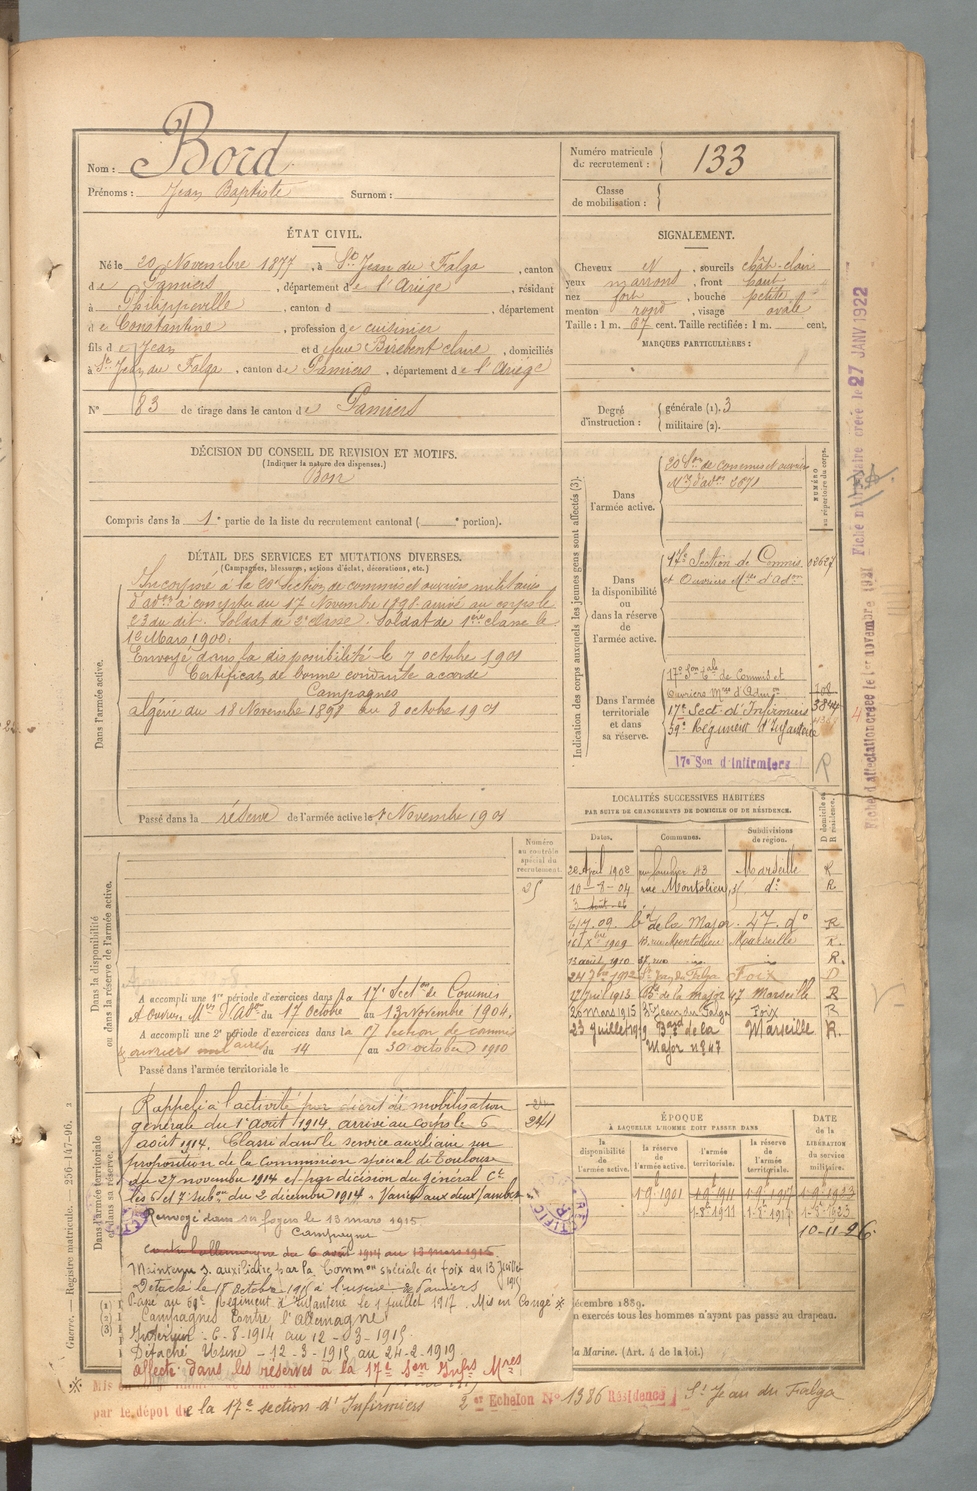 Nom : Bord
Prénoms : Jean Baptiste Surnom :
Numéro matricule du recrutement : 133
Classe de mobilisation :
ÉTAT CIVIL.
Né le 20 Novembre 1877, à St Jean du Falga, canton
de Pamiers, département de l'Ariège, résidant
à Philippeville, canton d , département
de Constantine, profession de cuisinier
fils de Jean et de feue Birebent claire, domiciliés
à St Jean du Falga, canton de Pamiers, département de l'Ariège
N° 83 de tirage dans le canton de Pamiers
SIGNALEMENT.
Cheveux N, sourcils chât-clair
yeux marrons, front haut
nez fort, bouche petite
menton rond, visage ovale
Taille : 1 m. 67 cent. Taille rectifiée : 1 m. cent.
MARQUES PARTICULIÈRES :
Degré d'instruction : générale (1). 3
militaire (2).
DÉCISION DU CONSEIL DE REVISION ET MOTIFS.
(Indiquer la nature des dispenses.)
Bon
Compris dans la 1e partie de la liste du recrutement cantonal ( e portion).
DÉTAIL DES SERVICES ET MUTATIONS DIVERSES.
(Campagnes, blessures, actions d'éclat, décorations, etc.)
Dans l'armée active.
Incorporé à la 20e section de commis et ouvriers militaires
d'adon à compter du 17 Novembre 1898 arrivé au corps le
23 du dit. Soldat de 2e classe. Soldat de 1ère classe le
1er Mars 1900.
Envoyé dans la disponibilité le 7 octobre 1901
Certificat de bonne conduite accordé
Campagnes
Algérie du 18 Novembre 1898 au 8 octobre 1901
Passé dans la réserve de l'armée active le 1 Novembre 1901
Indication des corps auxquels les jeunes gens sont affectés (3).
NUMÉRO au répertoire du corps.
Dans l'armée active.
20 Son de commis et ouvriers
Mres d'adon 2871
Dans la disponibilité ou dans la réserve de l'armée active.
17e Section de Commis
et Ouvriers Mres d'adon
Dans l'armée territoriale et dans sa réserve.
17e Son tale de Commis et
Ouvriers Mres d'Admon
17e Sect d'Infirmiers 3844
59e Régiment d'Infanterie
17e Son d'Infirmiers
R
Fiche d'affectation créée le 1er novembre 1921 Fiche matriculaire créée le 27 JANV 1922
LOCALITÉS SUCCESSIVES HABITÉES
PAR SUITE DE CHANGEMENTS DE DOMICILE OU DE RÉSIDENCE.
Dates. Communes. Subdivisions de région. D domicile ou R résidence.
28 Avril 1902 43 Marseille R
10-8-04 rue Montolieu, do R
6/7.09 bd de la Major 47 do R
1909 13 rue Montolieu Marseille R.
13 août 1910 37, rue R.
24 1912 St Jean du Falga Foix D
1913 Bd de la major 47 Marseille R
26 mars 1915 St Jean du Falga Foix R
23 Juillet 1919 Bard de la Marseille R.
Major n° 47
Numéro au contrôle spécial du recrutement.
25
Dans la disponibilité ou dans la réserve de l'armée active.
A accompli une 1re période d'exercices dans la 17e Secton de Commis
et Ouvrier Mres d'Adon du 17 Octobre au 13 novembre 1904.
A accompli une 2e période d'exercices dans la 17 Section de commis
& ouvriers militaires du 14 au 30 octobre 1910
Passé dans l'armée territoriale le
Dans l'armée territoriale et dans sa réserve.
Rappelé à l'activité par décret de mobilisation
générale du 1er août 1914, arrivé au corps le 6
août 1914. Classé dans le service auxiliaire sur
proposition de la commission spéciale de Toulouse
du 27 novembre 1914 et par décision du général Ct
les 5 et 7e subon du 2 décembre 1914. Varices aux deux jambes
Renvoyé dans ses foyers le 13 mars 1915
Campagne
contre l'allemagne du 6 août 1914 au 13 mars 1915.
Maintenu s. auxiliaire par la Common spéciale de Foix du 13 Juillet
1915
Détaché le 18 octobre 1915 à l'usine de Pamiers
Passé au 59e Régiment d'Infanterie le 1 juillet 1917. Mis en Congé ※
Campagnes Contre l'Allemagne
Intérieur - 6-8-1914 au 12-3-1915
Détaché Usine - 12-3-1915 au 24-2-1919
affecté dans les réserves à la 17e Son Infrs Mres
244
ÉPOQUE
À LAQUELLE L'HOMME DOIT PASSER DANS
la disponibilité de l'armée active. la réserve de l'armée active. l'armée territoriale. la réserve de l'armée territoriale.
DATE de la LIBÉRATION du service militaire.
1-9bre 1901 1-9bre 1911 1-9bre 1917 1-9bre 1923
1-8bre 1911 1-8bre 1917 1-8-1923
10-11-26
décembre 1889.
en exercés tous les hommes n'ayant pas passé au drapeau.
la Marine. (Art. 4 de la loi.)
Guerre. — Registre matricule. 256-147-06.
(1)
(2)
(3)
※ Mis
par le dépôt de la 17e section d'Infirmiers 2 er Echelon N° 1386 Résidence St Jean du Falga